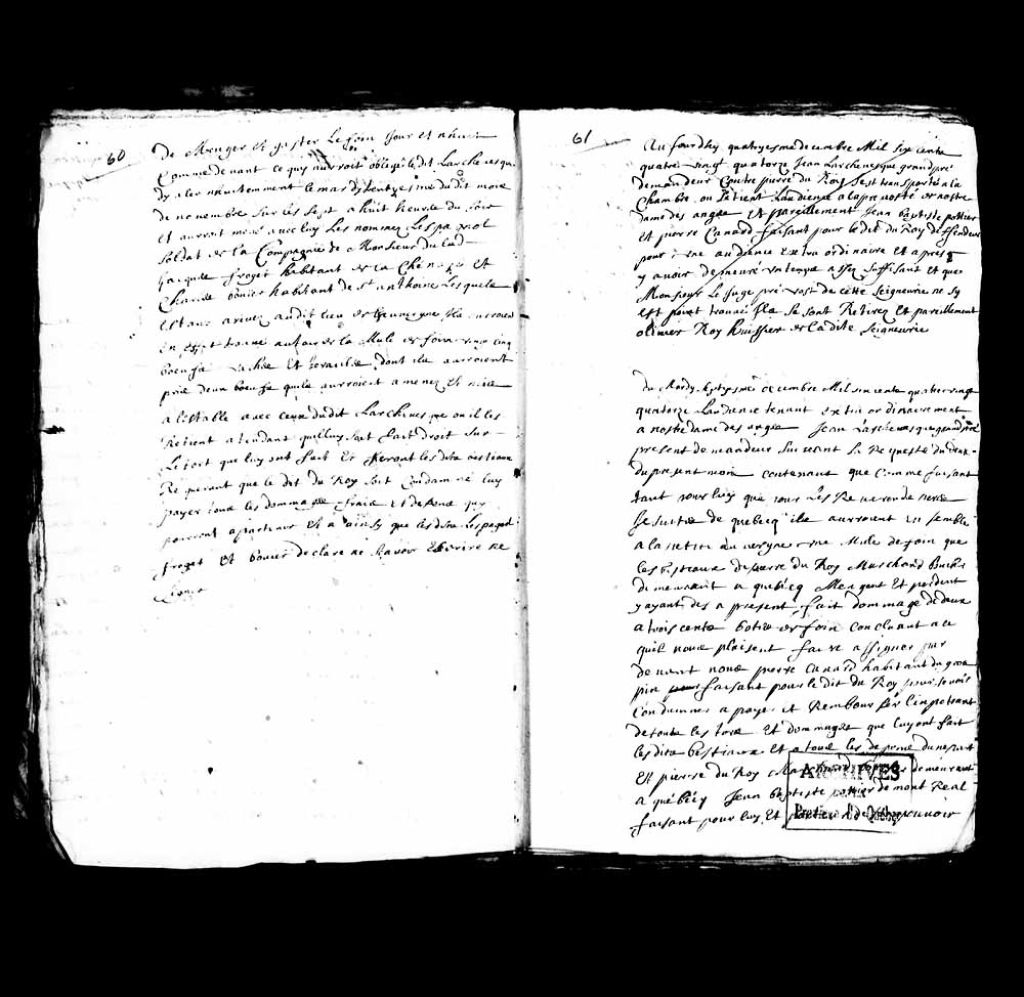 60
de Manger et gaster Le foin Jour et nuict
Comme devant ce quy auroit obligé le dit Larchevesque
dy aler nuictamment le mardy trentyesme du dit mois
de novembre Sur les Sept a huit heures du soir
et auroit mené avec luy Les nommez Lespagnol
soldat de la Compagnie de Monsieur
Jacques froget habitant de la Chenaye Et
Claude habitant de St anthoine Lesquels
Estans arivez audit lieu de ils auroient
En effet trouvé autour de la Mule de foin cinq
boeufs vaches Et toreaux dont ils auroient
pris deux boeufs quils auroient amenez
a lestable avec ceux du dit Larchevesque ou il les
Retient atendant quil luy soit fait droit sur
Le tort que luy ont fait Et feront les dits bestiaux
Requerant que le dit du Roy soit Condamné luy
payer tous les dommages fraix et despens quy
pouront apartenir Et a ainsy que les dits Lespagnol
froget Et declaré ne scavoir Escrire ne
Signer
61
Aujourdhuy quatryesme decembre Mil six cents
quatre vingt quatorze Jean Larchevesque grandpré
demandeur Contre pierre du Roy sest transporté a la
Chambre ou se tient Laudience a la prevosté de nostre
dame des anges Et pareillement Jean baptiste pottier
Et pierre Canard faisant pour le dit du Roy deffendeur
pour une audience Extraordinaire Et apres
y avoir demeuré un temps assez suffisant et que
Monsieur Le Juge prevost de cette seigneurie ne sy
est point trouvé Ils se sont Retirez Et pareillement
olivier Roy huissier de la dite seigneurie
Du Mardy septyesme decembre Mil six cents quatre vingt
quatorze Laudience tenant extraordinairement
a nostre dame des anges Jean Larchevesque grandpré
present demandeur suivant sa Requeste du deux
du present mois contenant que Comme faisant
tant pour luy que pour les Reverends peres
Jesuites de quebecq ils auroient Ensemble
a la une Mule de foin que
les bestiaux de pierre du Roy Marchand
demeurant a quebecq Mangent Et perdent
y ayant des a present fait dommage de deux
a trois cents bottes de foin Concluant a ce
quil nous plaisent faire assigner par
devant nous pierre Canard habitant du gros
pin faisant pour le dit du Roy pour se voir
Condamner a payer et Rembourser Limpetrant
de touts les torts Et dommages que luy ont fait
les dits bestiaux Et a tous les despens dune part
Et pierre du Roy Marchand demeurant
a québecq Jean baptiste pottier de mont Real
faisant pour luy Et porteur de pouvoir
ARCHIVES